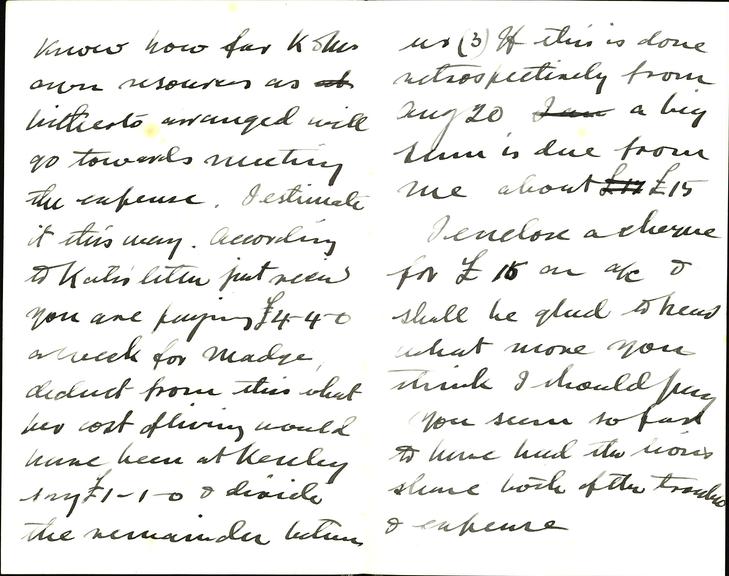 know how far K & his
own resources as
hitherto arranged will
go towards meeting
the expense. I estimate
it this way. According
to Katie's letter just recd
you are paying £4-4-0
a week for Madge,
deduct from this what
her cost of living would
have been at Kenley
say £1-1-0 & divide
the remainder between
us (3) If this is done
retrospectively from
Aug 20 I am a big
sum is due from
me about £11 £15
I enclose a cheque
for £15 on a/c &
shall be glad to hear
what more you
think I should pay
You seem so far
to have had the lion's
share both of the trouble
& expense